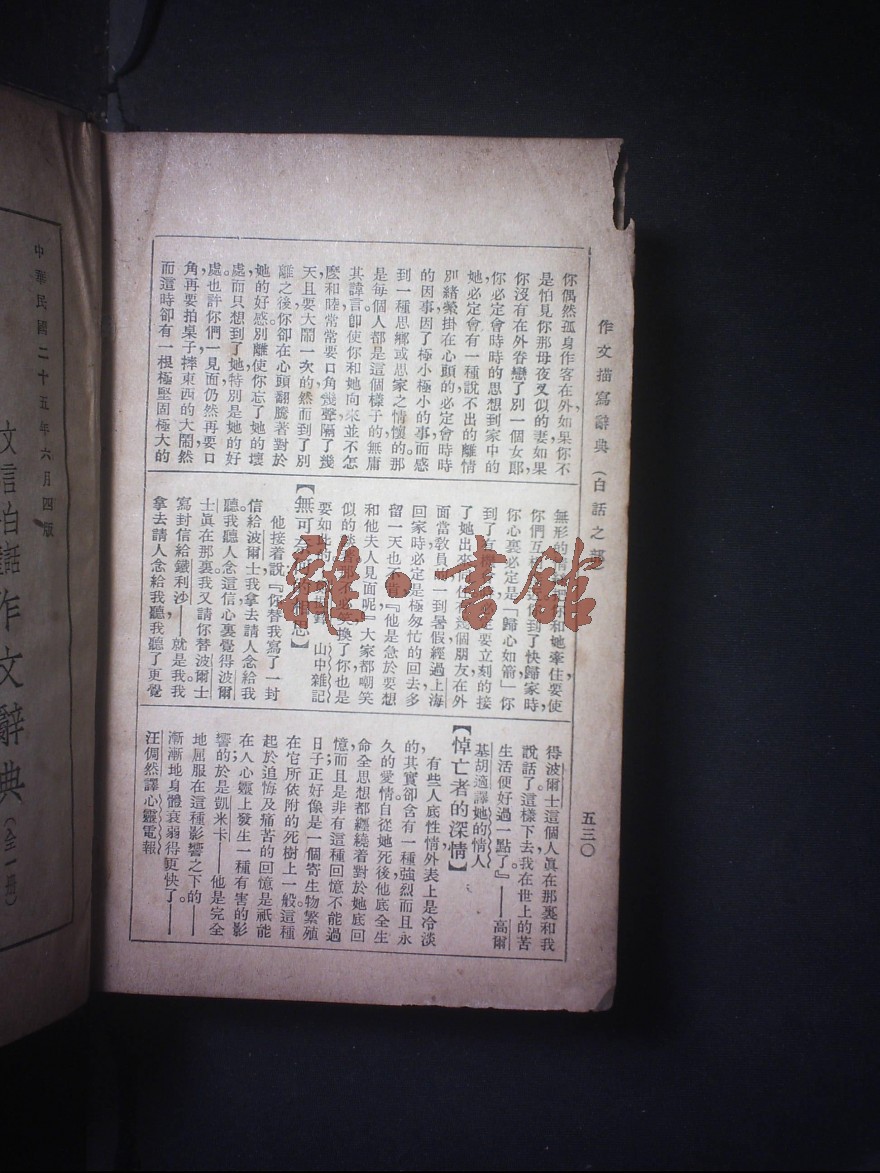 作文描寫辭典（白話之部）
五三〇
你偶然孤身作客在外如果你不
是怕見你那母夜叉似的妻如果
你沒有在外眷戀了別一個女郎，
你必定會時時的思想到家中的
她必定會有一種說不出的離情
別緒縈掛在心頭的必定會時時
的因事因了極小極小的事而感
到一種思鄉或思家之情懷的那
是每個人都是這個樣子的無庸
其諱言卽使你和她向來並不怎
麼和睦常常要口角幾聲隔了幾
天且要大鬧一次的然而到了別
離之後你卻在心頭翻騰著對於
她的好感別離使你忘了她的壞
處而只想到了她特別是她的好
處也許你們一見面仍然再要口
角再要拍桌子摔東西的大鬧然
而這時卻有一根極堅固極大的
無形的情
和她牽住要使
你們互相
你到了快歸家時，
你心裏必定是「歸心如箭」你
到了有
要立刻的接
了她出來
個朋友在外
面當敎員
一到暑假經過上海
回家時必定是極匆忙的回去多
留一天也不
『他是急於要想
和他夫人見面呢』大家都嘲笑
似的
必笑換了你也是
要如此的
山中雜記
【無可
思】
他接着說『你替我寫了一封
信給波爾士我拿去請人念給我
聽我聽人念這信心裏覺得波爾
士眞在那裏我又請你替波爾士
寫封信給鐵利沙——就是我我
拿去請人念給我聽我聽了更覺
得波爾士這個人眞在那裏和我
說話了這樣下去我在世上的苦
生活便好過一點了。』——高爾
基胡適譯她的情人
【悼亡者的深情】
有些人底性情外表上是冷淡
的，其實卻含有一種強烈而且永
久的愛情自從她死後他底全生
命全思想都纏繞着對於她底回
憶而且是非有這種回憶不能過
日子正好像是一個寄生物繁殖
在它所依附的死樹上一般這種
起於追悔及痛苦的回憶是祇能
在人心靈上發生一種有害的影
響的於是凱米卡——他是完全
地屈服在這種影響之下的——
漸漸地身體衰弱得更快了。——
汪倜然譯心靈電報
中華民國二十五年六月四版
文言白話作文辭典（全一册）
雜·書館